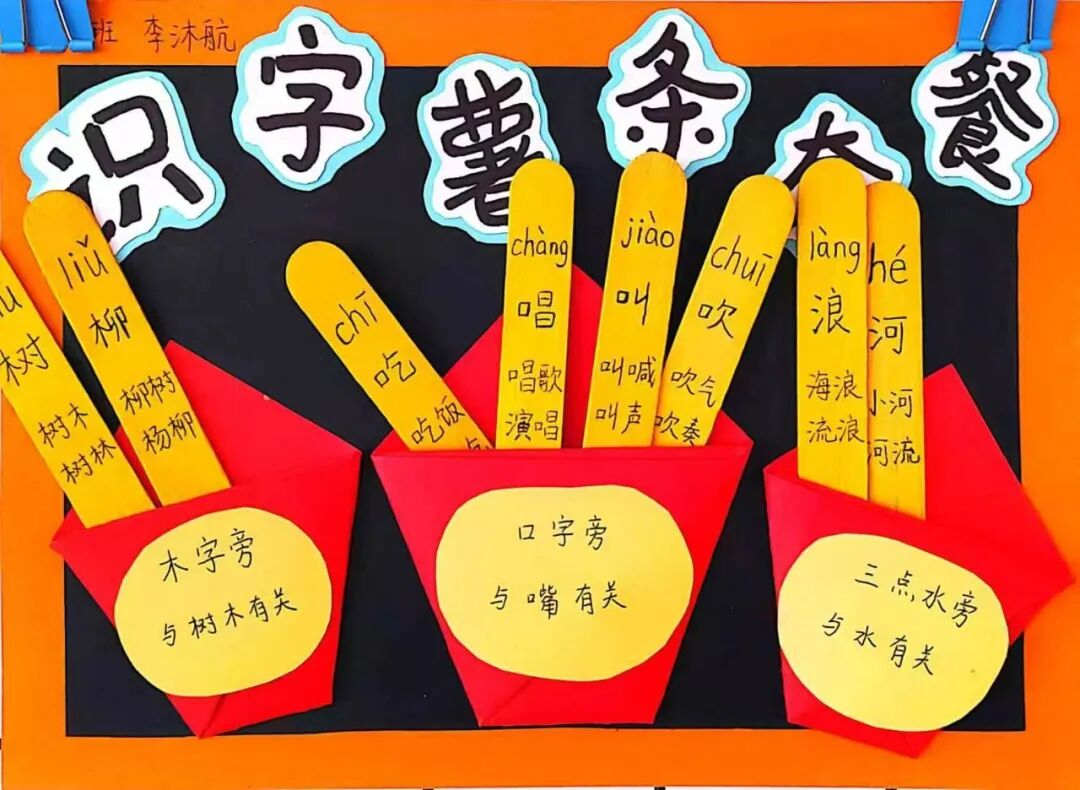 班 李沐航
识字薯条大餐
树
树木
树林
liǔ
柳
柳树
杨柳
木字旁
与树木有关
chī
吃
吃饭
chàng
唱
唱歌
演唱
jiào
叫
叫喊
叫声
chuī
吹
吹气
吹奏
口字旁
与嘴有关
làng
浪
海浪
流浪
hé
河
小河
河流
三点水旁
与水有关